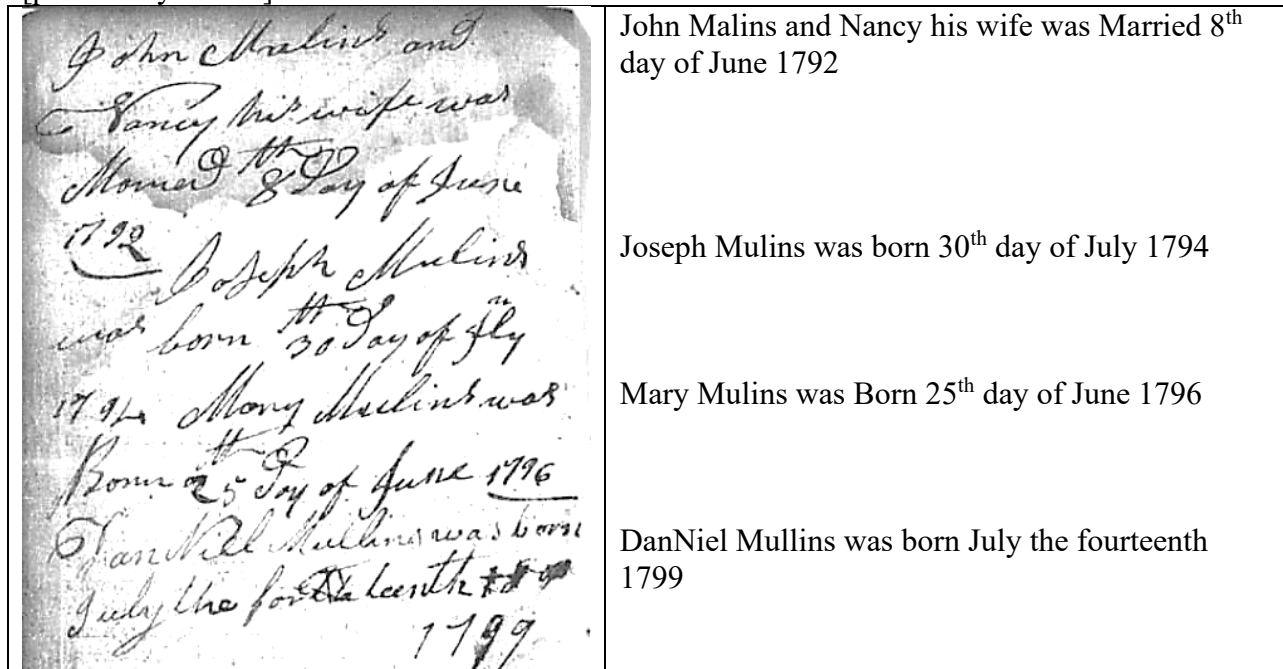 John Mulins and
Nancy his wife was
Married 8th Day of June
1792
Joseph Mulins
was born 30th Day of July
1794 Mary Mulins was
Born 25th Day of June 1796
DanNiel Mullins was born
July the forteenth
1799
John Malins and Nancy his wife was Married 8th
day of June 1792
Joseph Mulins was born 30th day of July 1794
Mary Mulins was Born 25th day of June 1796
DanNiel Mullins was born July the fourteenth
1799